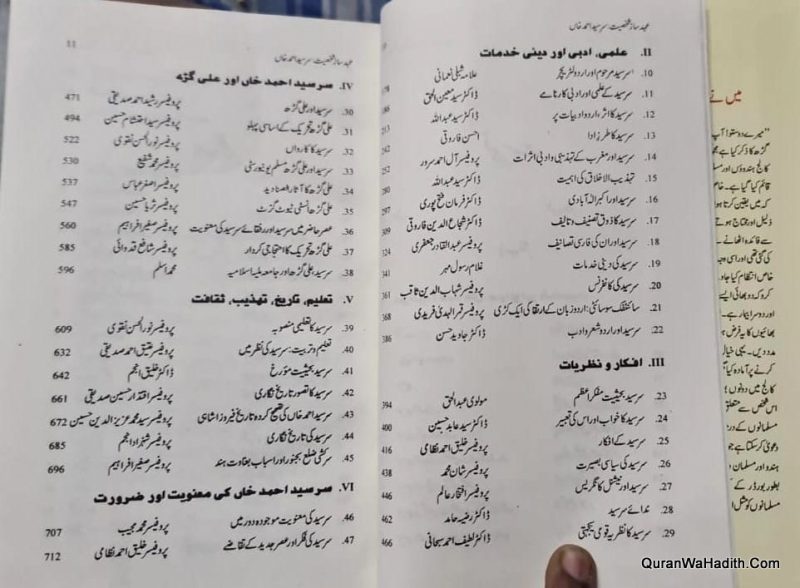 عہد ساز شخصیت سرسید احمد خاں
II. علمی، ادبی اور دینی خدمات
10. سرسید مرحوم اور اردو لٹریچر علامہ شبلی نعمانی
11. سرسید کے علمی اور ادبی کارنامے ڈاکٹر سید معین الحق
12. سرسید کا اثر، اردو ادبیات پر ڈاکٹر سید عبداللہ
13. سرسید کا طرز ادا احسن فاروقی
14. سرسید اور مغرب کے تہذیبی و ادبی اثرات پروفیسر آل احمد سرور
15. تہذیب الاخلاق کی اہمیت ڈاکٹر سید عبداللہ
16. سرسید اور اکبر الہ آبادی ڈاکٹر فرمان فتح پوری
17. سرسید کا ذوق تصنیف و تالیف ڈاکٹر شجاع الدین فاروقی
18. سرسید اور ان کی فارسی تصانیف پروفیسر عبدالقادر جعفری
19. سرسید کی دینی خدمات غلام رسول مہر
20. سرسید کی کانفرنس پروفیسر شہاب الدین ثاقب
21. سائنٹفک سوسائٹی: اردو زبان کے ارتقا کی ایک کڑی پروفیسر قمر الہدیٰ فریدی
22. سرسید اور اردو شعر و ادب ڈاکٹر جاوید حسن 386
III. افکار و نظریات
23. سرسید بحیثیت مفکر اعظم مولوی عبدالحق 394
24. سرسید کا خواب اور اس کی تعبیر ڈاکٹر سید عابد حسین 400
25. سرسید کے افکار پروفیسر خلیق احمد نظامی 416
26. سرسید کی سیاسی بصیرت پروفیسر شان محمد 438
27. سرسید اور نیشنل کانگریس پروفیسر افتخار عالم 446
28. ندائے سرسید ڈاکٹر رضیہ حامد 462
29. سرسید کا نظریہ قومی یکجہتی ڈاکٹر لطیف احمد سبحانی 466
عہد ساز شخصیت سرسید احمد خاں 11
IV. سرسید احمد خاں اور علی گڑھ
30. سرسید اور علی گڑھ پروفیسر رشید احمد صدیقی 471
31. علی گڑھ تحریک کے اساسی پہلو پروفیسر سید احتشام حسین 494
32. سرسید کا کارواں پروفیسر نورالحسن نقوی 522
33. سرسید اور علی گڑھ مسلم یونیورسٹی پروفیسر محمد شفیع 530
34. علی گڑھ کا آثار الصنادید پروفیسر اصغر عباس 537
35. علی گڑھ انسٹی ٹیوٹ گزٹ پروفیسر ثریا حسین 547
36. عصر حاضر میں سرسید اور رفقائے سرسید کی معنویت پروفیسر صغیر افراہیم 560
37. علی گڑھ تحریک کا احتجاجی کردار پروفیسر شافع قدوائی 585
38. سرسید، علی گڑھ اور جامعہ ملیہ اسلامیہ محمد اسلم 596
V. تعلیم، تاریخ، تہذیب، ثقافت
39. سرسید کا تعلیمی منصوبہ پروفیسر نورالحسن نقوی 609
40. تعلیم و تربیت: سرسید کی نظر میں پروفیسر عتیق احمد صدیقی 632
41. سرسید بحیثیت مؤرخ ڈاکٹر خلیق انجم 642
42. سرسید کا تصور تاریخ نگاری پروفیسر اقتدار حسین صدیقی 661
43. سرسید احمد خاں کی تصحیح کردہ تاریخ فیروز شاہی پروفیسر سید محمد عزیزالدین حسین 672
44. سرسید کی تاریخ نگاری پروفیسر شہزاد انجم 685
45. سرکشی ضلع بجنور اور اسباب بغاوت ہند پروفیسر صغیر افراہیم 696
VI. سرسید احمد خاں کی معنویت اور ضرورت
46. سرسید کی معنویت موجودہ دور میں پروفیسر محمد مجیب 707
47. سرسید کی فکر اور عصر جدید کے تقاضے پروفیسر خلیق احمد نظامی 712
میں نے
"میرے دوستو! آپ
گڑھ کا ذکر کیا ہے
کالج ہندوؤں اور
قائم کیا گیا ہے۔
کہ میں یقین کرتا
ذلیل اور محتاج ہوتے
سے فائدہ اٹھانے
کی گئی تھی اور اسی وجہ
خاص انتظام کیا جاوے
کرو کہ دو بھائی ایسے
اور دوسرا بیمار ہے۔
بھائیوں کا یہ فرض
مدد دیں۔ یہی خیال
کرنے پر آمادہ کیا
کالج میں دونوں
اس شخص سے متعلق
مسلمانوں کے
دعویٰ کر سکتا ہے جو
ہندو اور مسلمان
بطور بورڈر کے
مسلمانوں کو مثل
QuranWaHadith.Com